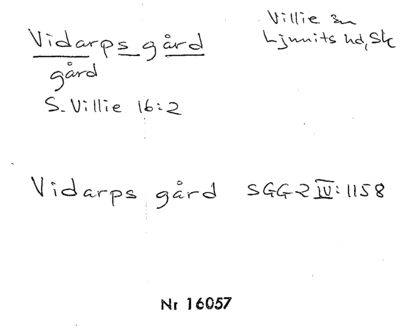 Vidarps gård
gård
S. Villie 16:2
Villie sn
Ljunits hd, Sk
Vidarps gård SGG 2 IV: 1158
Nr 16057